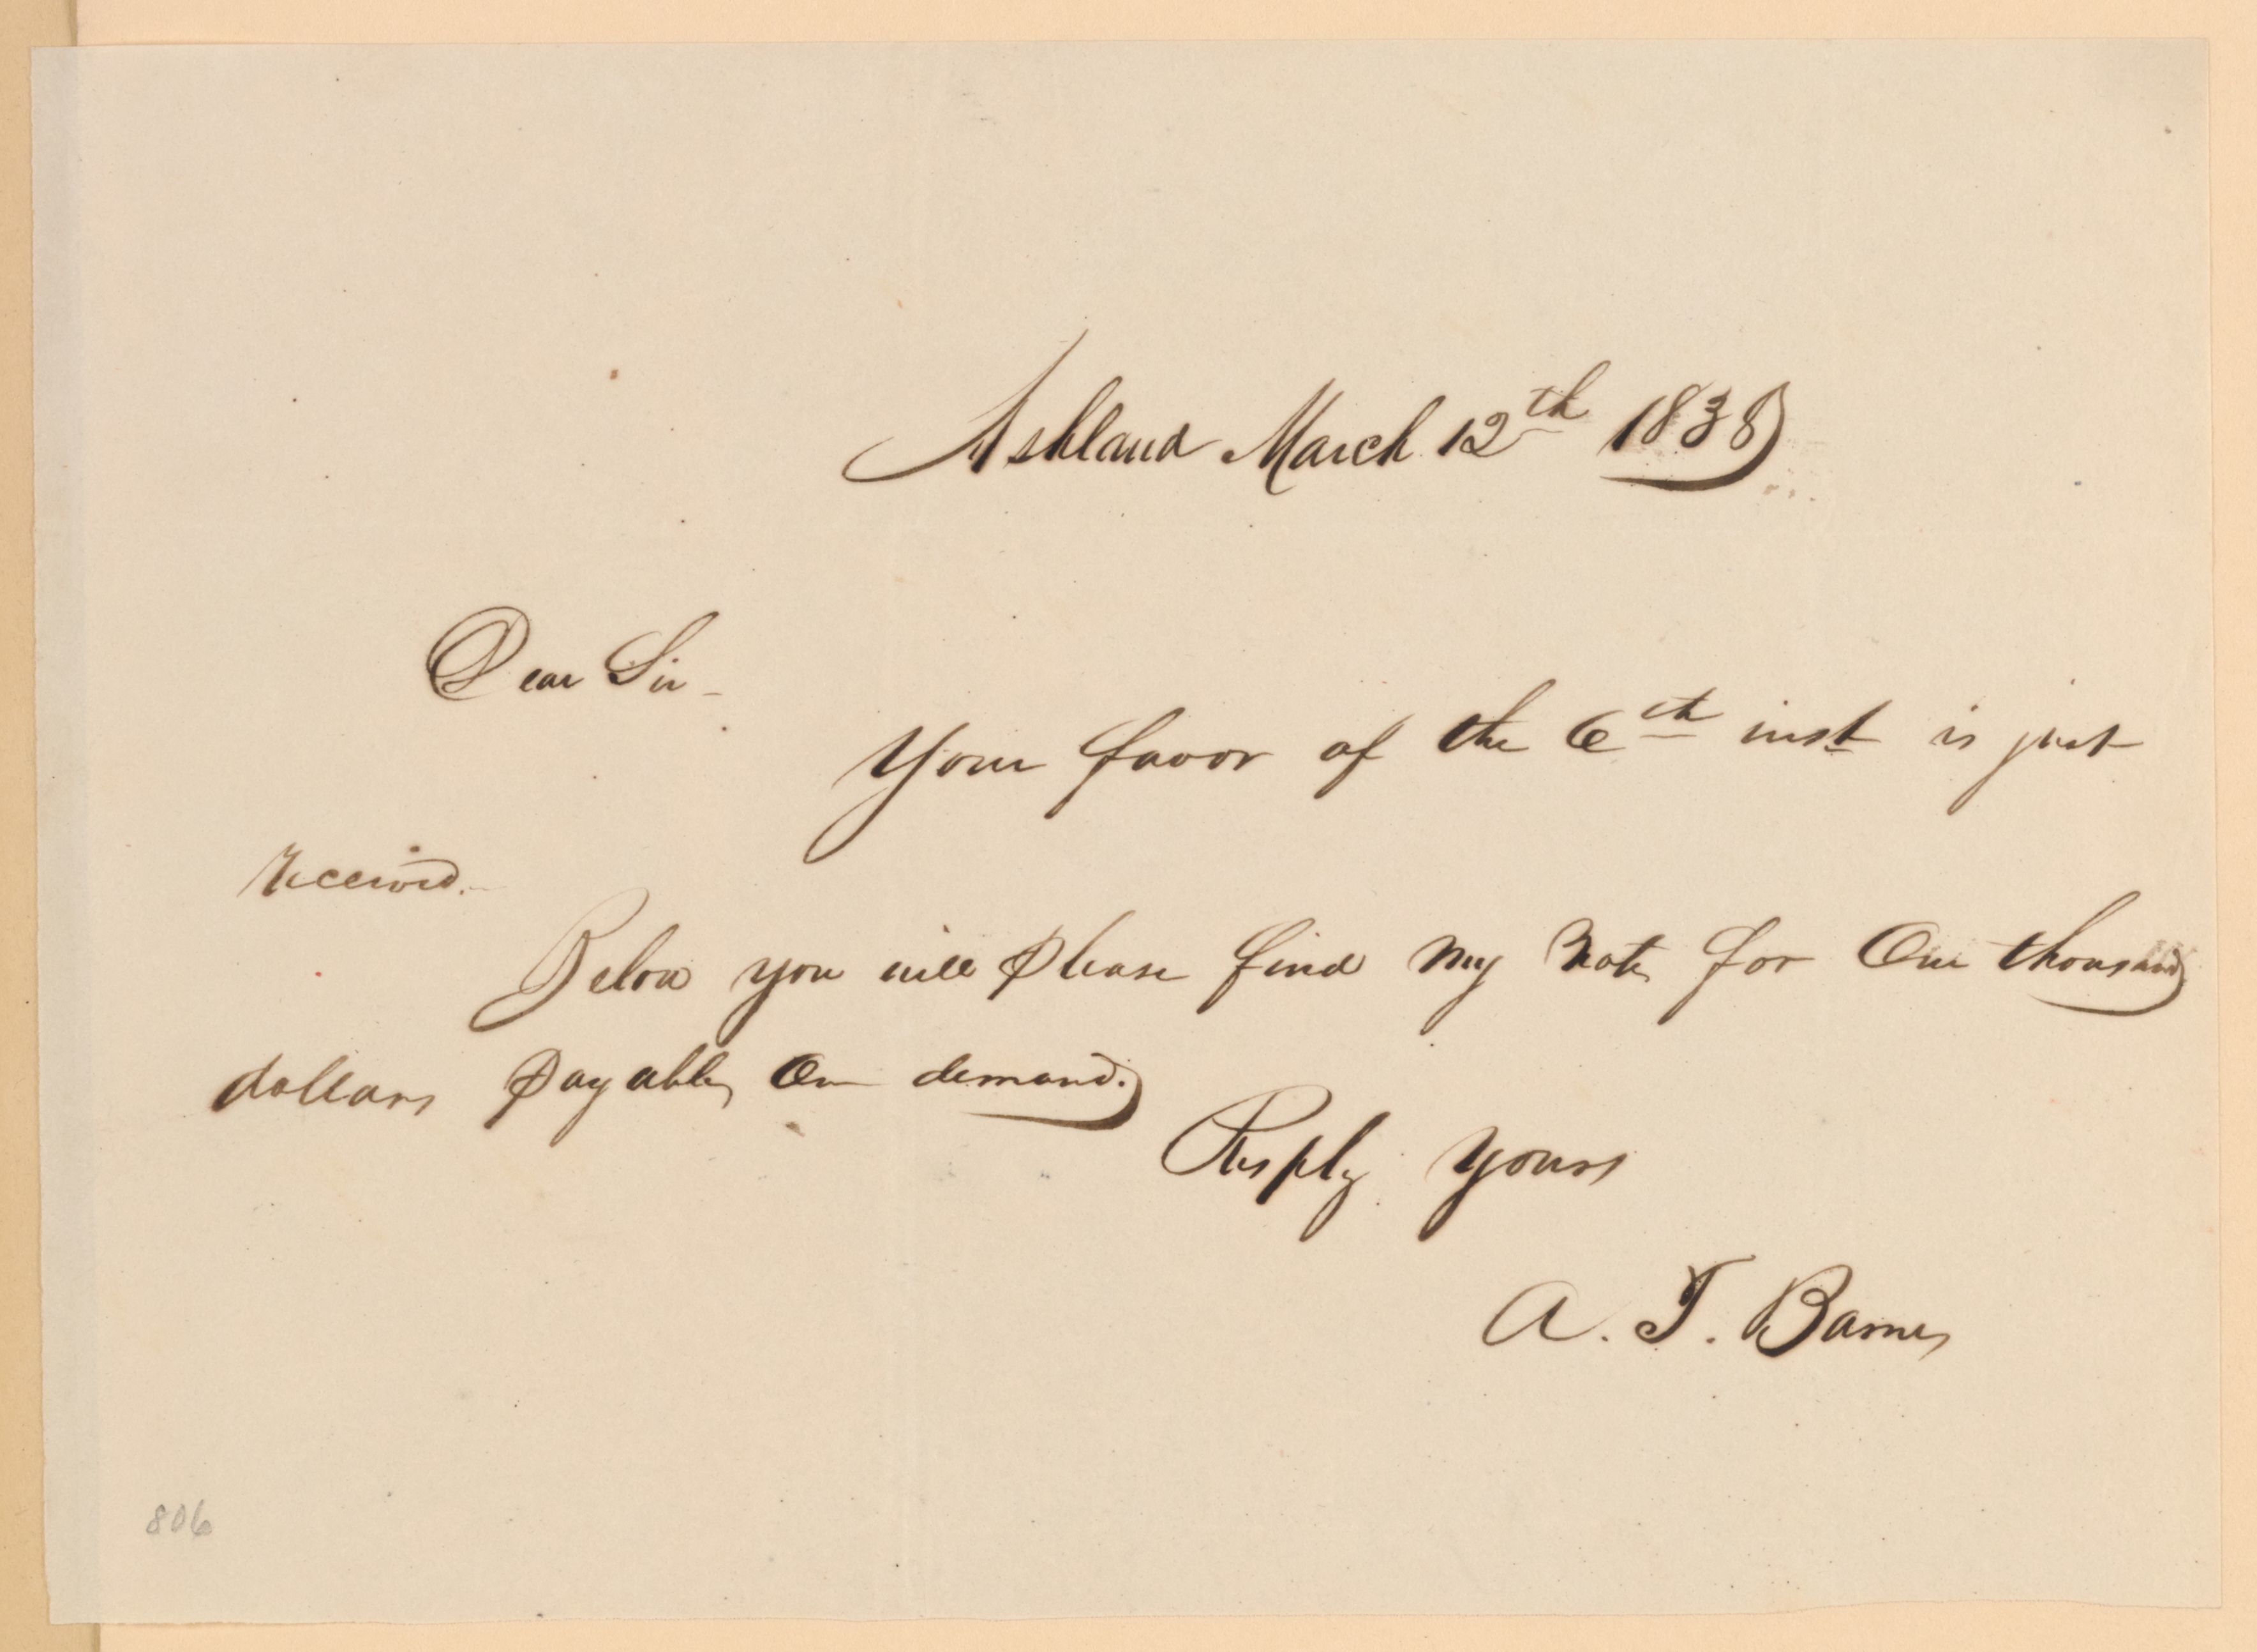 Ashland March 12th 1838
Dear Sir -
Your favor of the 6th inst is just
received.
Below you will please find my note for One thousand
dollars payable on demand.
Resply yours
A. T. Barnes
806